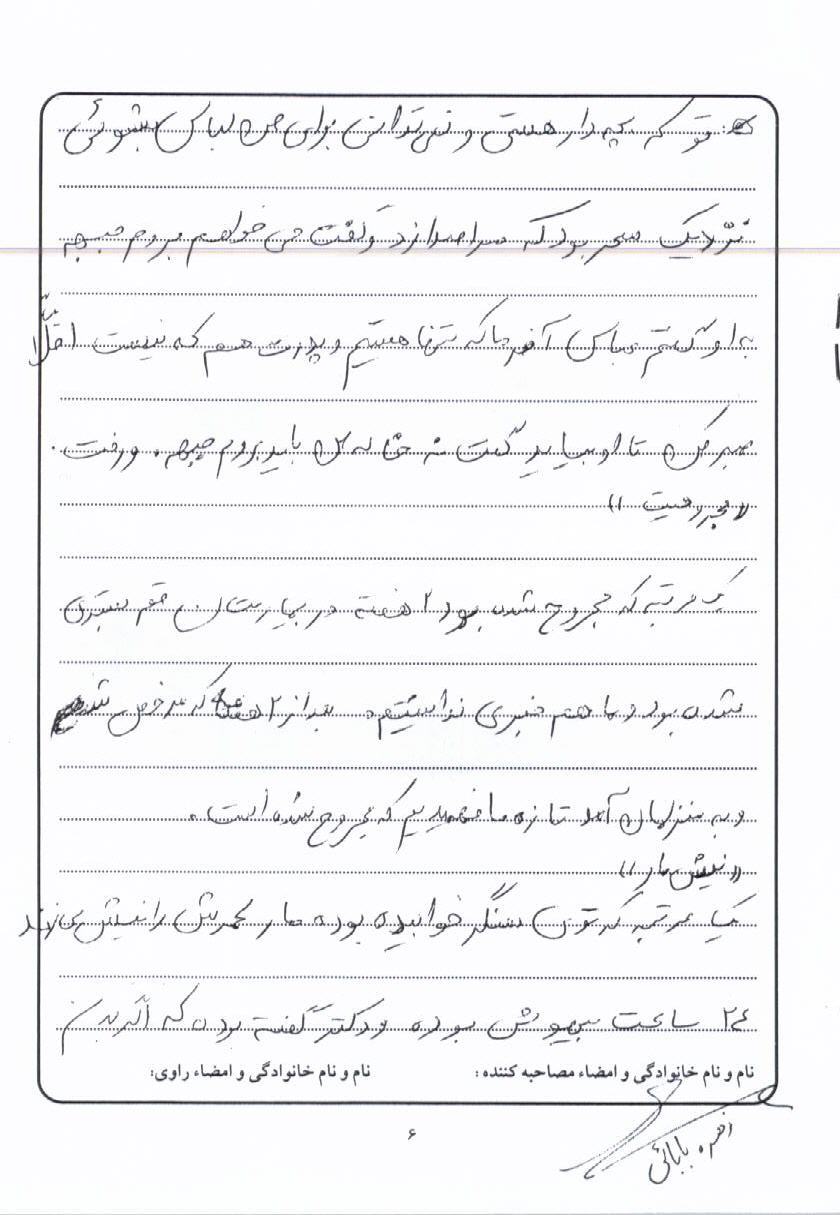 تو که بچه دار هستی و نمی توانی برای من لباس بشوئی
نزدیک سحر بود که مرا صدا زد و گفت می خواهم بروم جبهه
به او گفتم عباس آخر ما که تنها هستیم و پدرت هم که نیست اقلّاً
صبر کن تا او بیاید گفت نه حتما من باید بروم جبهه . و رفت .
«مجروحیت»
یک مرتبه که مجروح شده بود ۲ هفته در بیمارستان قم بستری
شده بود و ما هم خبری نداشتیم . بعد از ۲ هفته که مرخص
و به منزلمان آمد تازه ما فهمیدیم که مجروح شده است .
«نیش مار»
یک مرتبه که توی سنگر خوابیده بوده مار کمرش را نیش می زند
۲۴ ساعت بیهوش بوده و دکتر گفته بوده که اگر بدن
نام و نام خانوادگی و امضاء مصاحبه کننده : نام و نام خانوادگی و امضاء راوی:
۶
زهره بابائی